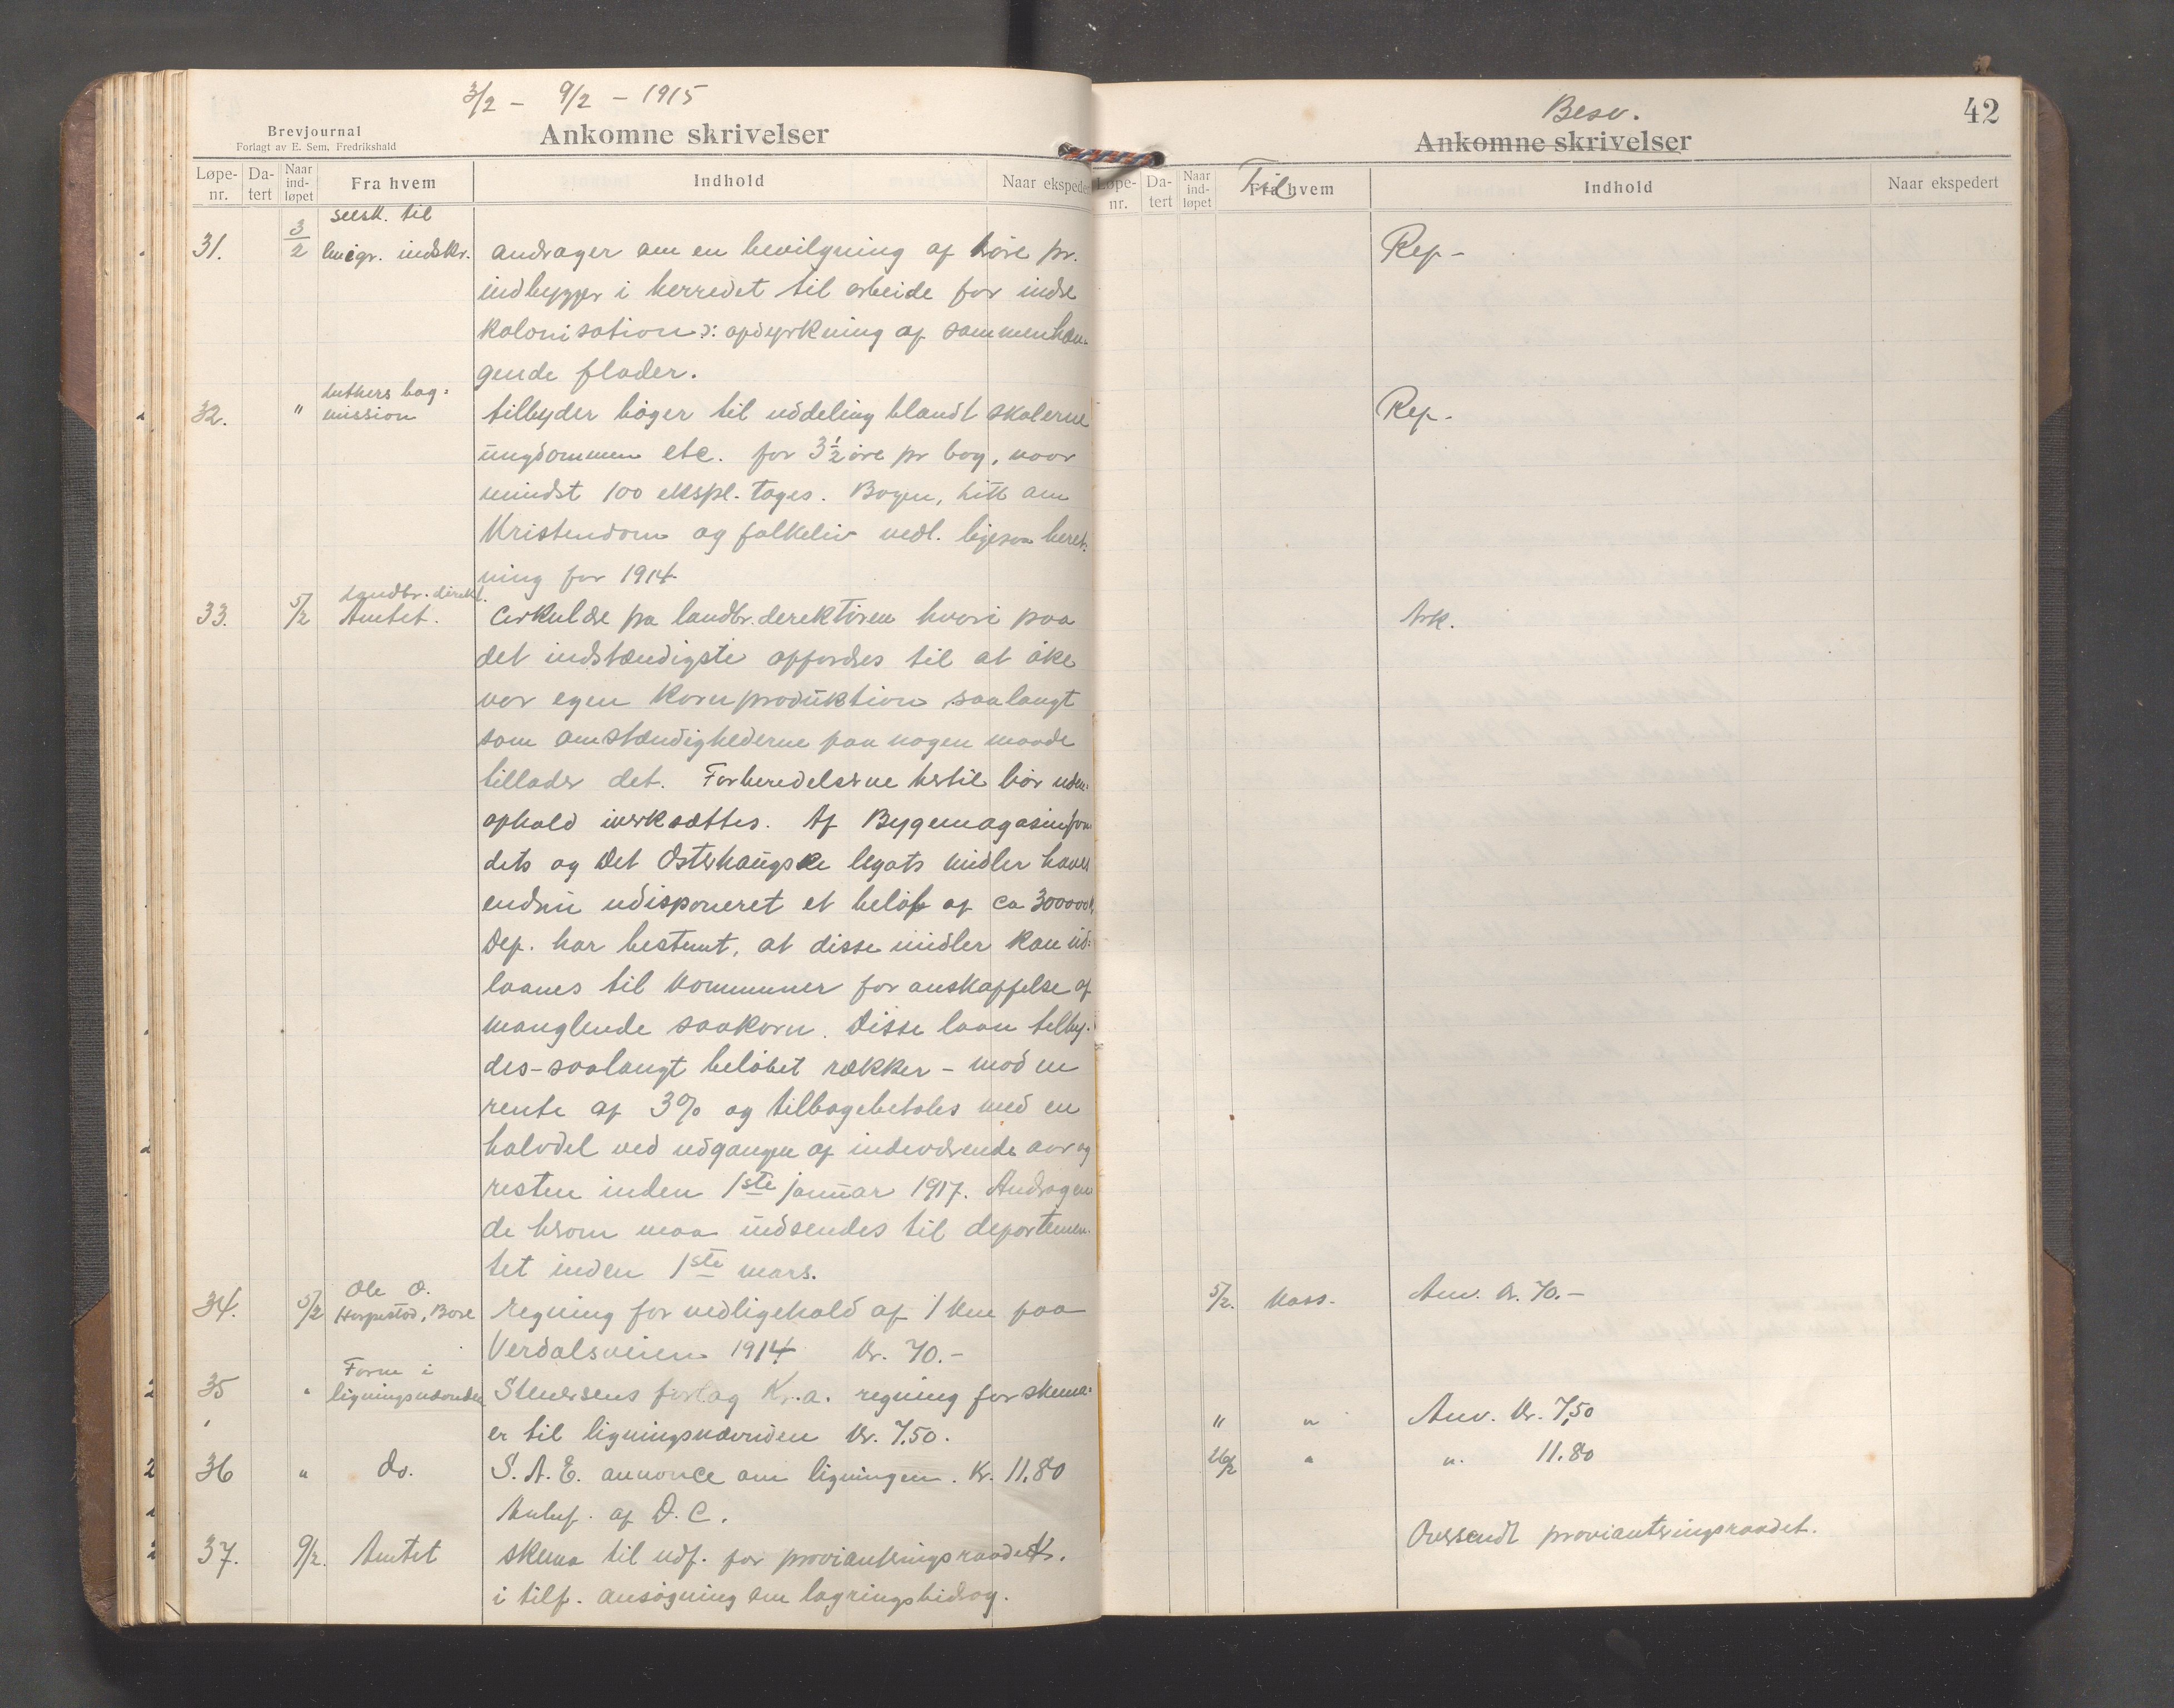 3/2 - 9/2 - 1915
Brevjournal
Forlagt av E. Sem, Fredrikshald
Ankomne skrivelser
Løpe-nr. Da-tert Naar ind-løpet Fra hvem Indhold Naar ekspedert
selsk. til
31. 3/2 emigr. indskr. andrager om en bevilgning af 1 øre pr.
indbygger i herredet til arbeide for indre
kolonisation ɔ: opdyrkning af sammenhæn-
gende flader.
Luthers bog-
32. " mission tilbyder bøger til uddeling blandt skolerne
ungdommen etc. for 3½ øre pr bog, naar
mindst 100 ekspl. tages. Bogen, litt om
Kristendom og folkeliv vedl. ligesaa beret-
ning for 1914
Landbr. direkt.
33. 5/2 Amtet. Cirkulære fra landbr. direktøren hvori paa
det indstændigste opfordres til at øke
vor egen kornproduktion saalangt
som omstændighederne paa nogen maade
tillader det. Forberedelserne hertil bør uden
ophold iverksættes. Af Bygemagasinfon
dets og Det Østerhaugske legats midler haves
endnu udisponeret et beløb af ca 300000 kr.
Dep. har bestemt, at disse midler kan ud-
laanes til kommuner for anskaffelse af
manglende saakorn. Disse laan tilby-
des - saalangt beløbet rækker - mod en
rente af 3% og tilbagebetales med en
halvdel ved udgangen af indeværende aar og
resten inden 1ste januar 1917. Andragen
de herom maa indsendes til departemen-
tet inden 1ste mars.
Ole O.
34. 5/2 Herpestad, Bore regning for vedligehold af 1 km paa
Verdalsveien 1914 Kr. 70.-
Form i
35 " ligningsnævnden Stenersens forlag Kr.a. regning for skema-
er til ligningsnævnden Kr. 7.50.
36 " do. S. A. E. annonce om ligningen. Kr. 11.80
Anbef. af O. C.
37. 9/2. Amtet skema til udf. for provianteringsraadet.
i tilf. ansøgning om lagringsbidrag.
42
Besv.
Ankomne skrivelser
Løpe-nr. Da-tert Naar ind-løpet Til Fra hvem Indhold Naar ekspedert
Rep -
Rep -
Ark.
5/2. Kass. Anv. Kr. 70.-
" " Anv. Kr. 7,50
26/2 " " 11.80
Oversendt provianteringsraadet.